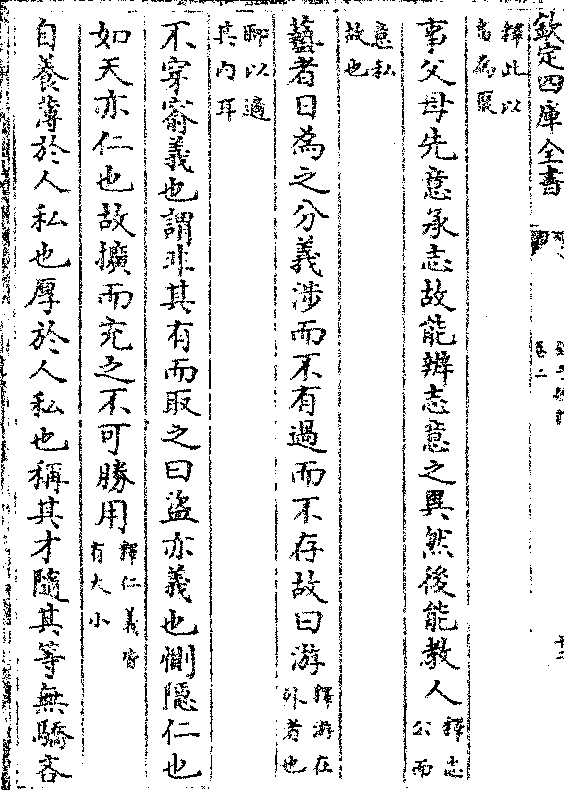 欽定四庫全書
卷二
釋此以
事父母先意承志故能辨志意之異然後能教人釋志公而
意私故也
藝者日為之分義涉而不有過而不存故曰游釋游在外者也
聊以適其内耳
不穿窬義也謂非其有而取之曰盜亦義也惻隱仁也
如天亦仁也故擴而充之不可勝用釋仁義皆有大小
自養薄於人私也厚於人私也稱其才隨其等無驕吝